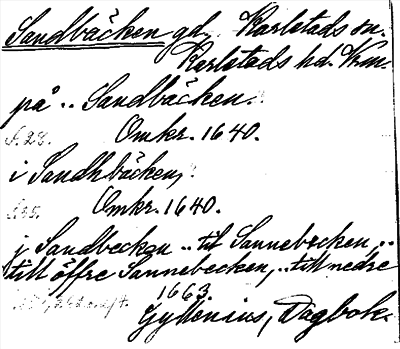 Sandbäcken gd, Karlstads sn.
Karlstads hd. Vrml.
på .. Sandbäcken.
S. 28. Omkr. 1640.
i Sandhbäcken,
Omkr. 1640.
j Sandbecken .. til Sannebecken, ..
till öffre Sannebecken, .. till nedre
1663.
Gyllenius, Dagbok.